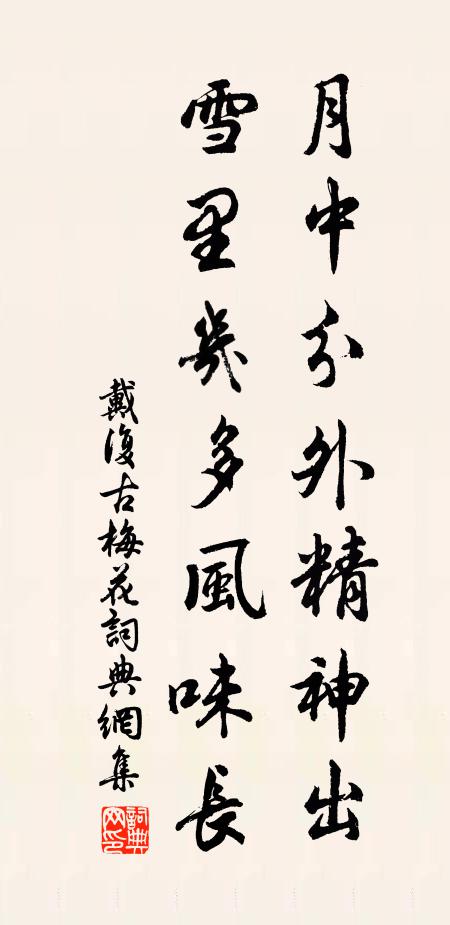 月中分外精神出
雪里幾多風味長
戴復古梅花詞典網集
詞典网印